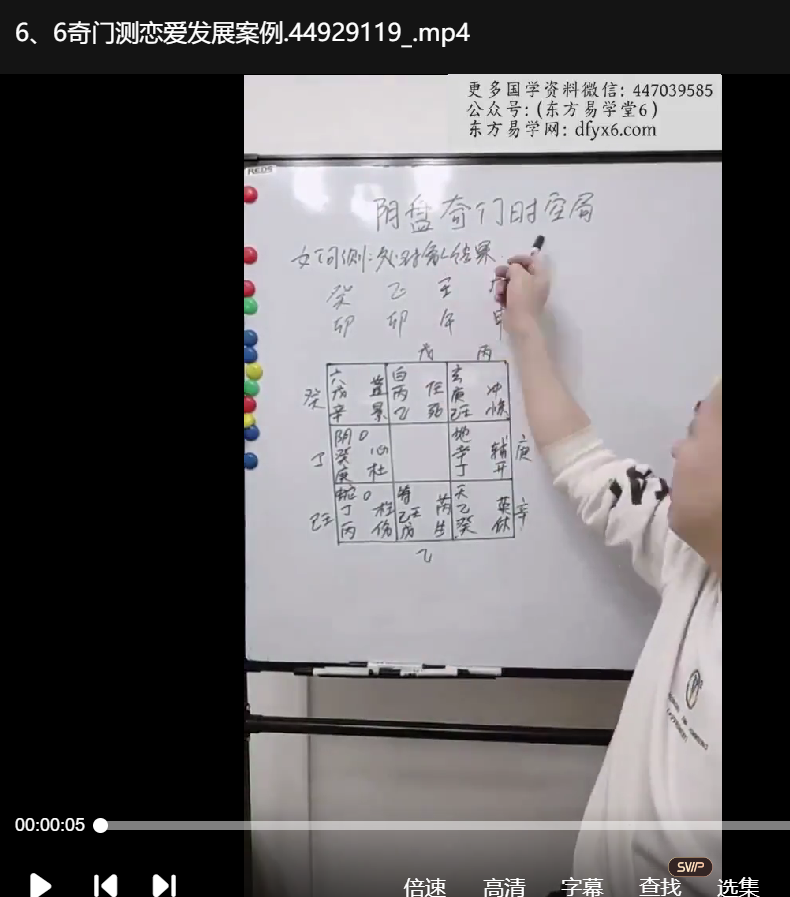 6、6奇门测恋爱发展案例.44929119_.mp4
更多国学资料微信: 447039585
公众号: (东方易学堂6)
东方易学网: dfyx6.com
阴盘奇门时空局
如何测:处对象结果
癸 乙 壬
卯 卯 午 申
戊 丙
癸 六 白 玄
戊 景 丙 任 死 庚 冲
辛 乙 己壬
阴 0 地
丁 癸 心 辛 辅 庚
庚 杜 丁 开
蛇 0 符 天
己壬 丁 柱 己壬 芮 乙 英 辛
丙 伤 戊 生 癸 休
乙
00:00:05
SVIP
倍速 高清 字幕 查找 选集